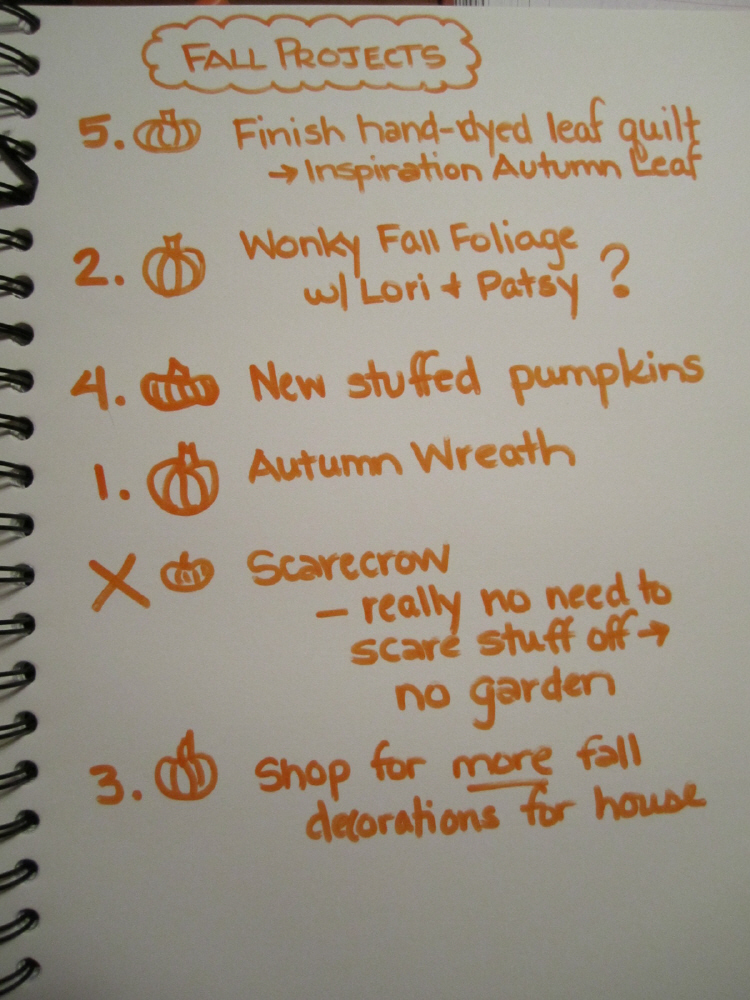 FALL PROJECTS
5. Finish hand-dyed leaf quilt
→ Inspiration Autumn Leaf
2. Wonky Fall Foliage
w/ Lori + Patsy ?
4. New stuffed pumpkins
1. Autumn Wreath
X Scarecrow
— really no need to
scare stuff off →
no garden
3. Shop for more fall
decorations for house